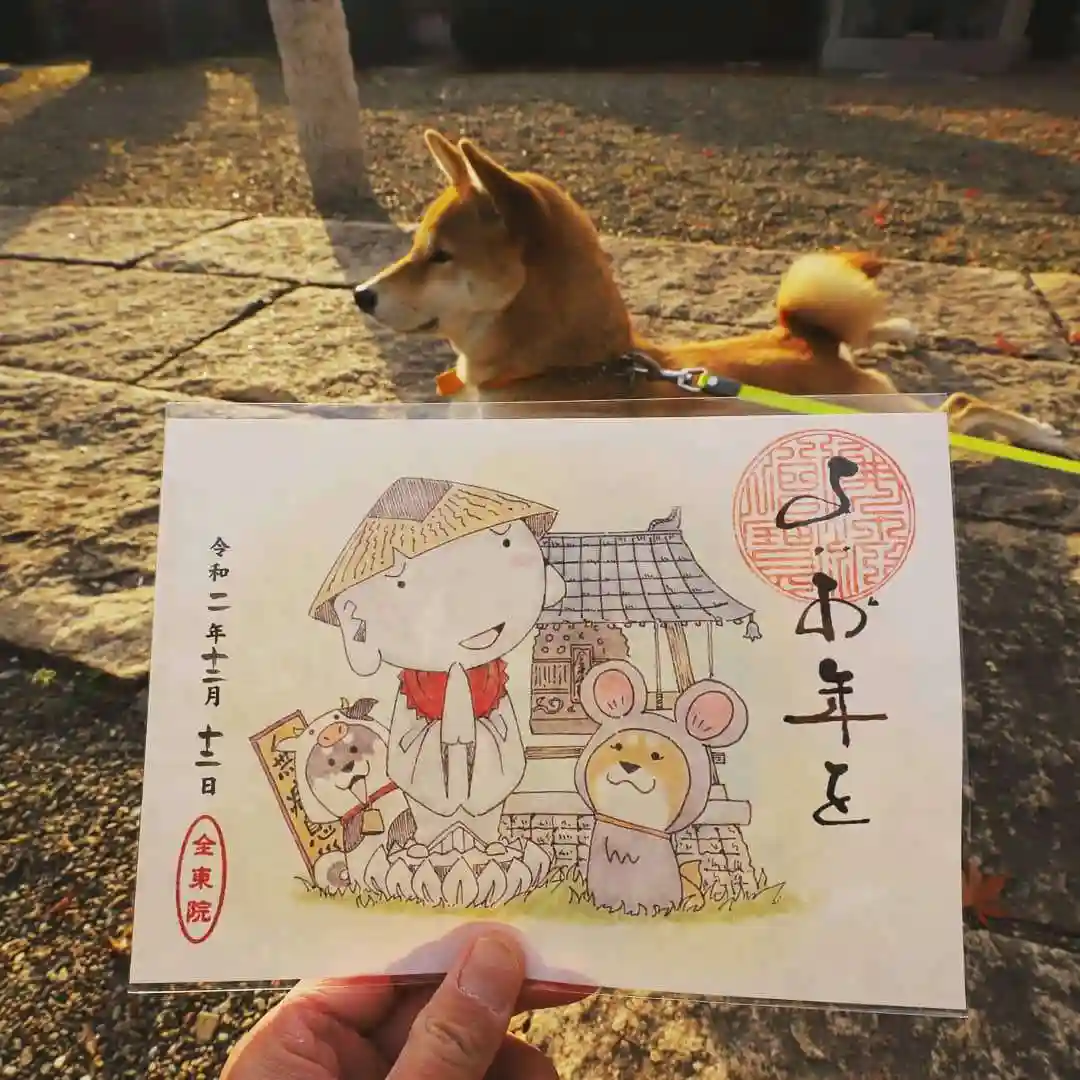 よいお年を
令和二年十二月十二日
全東院